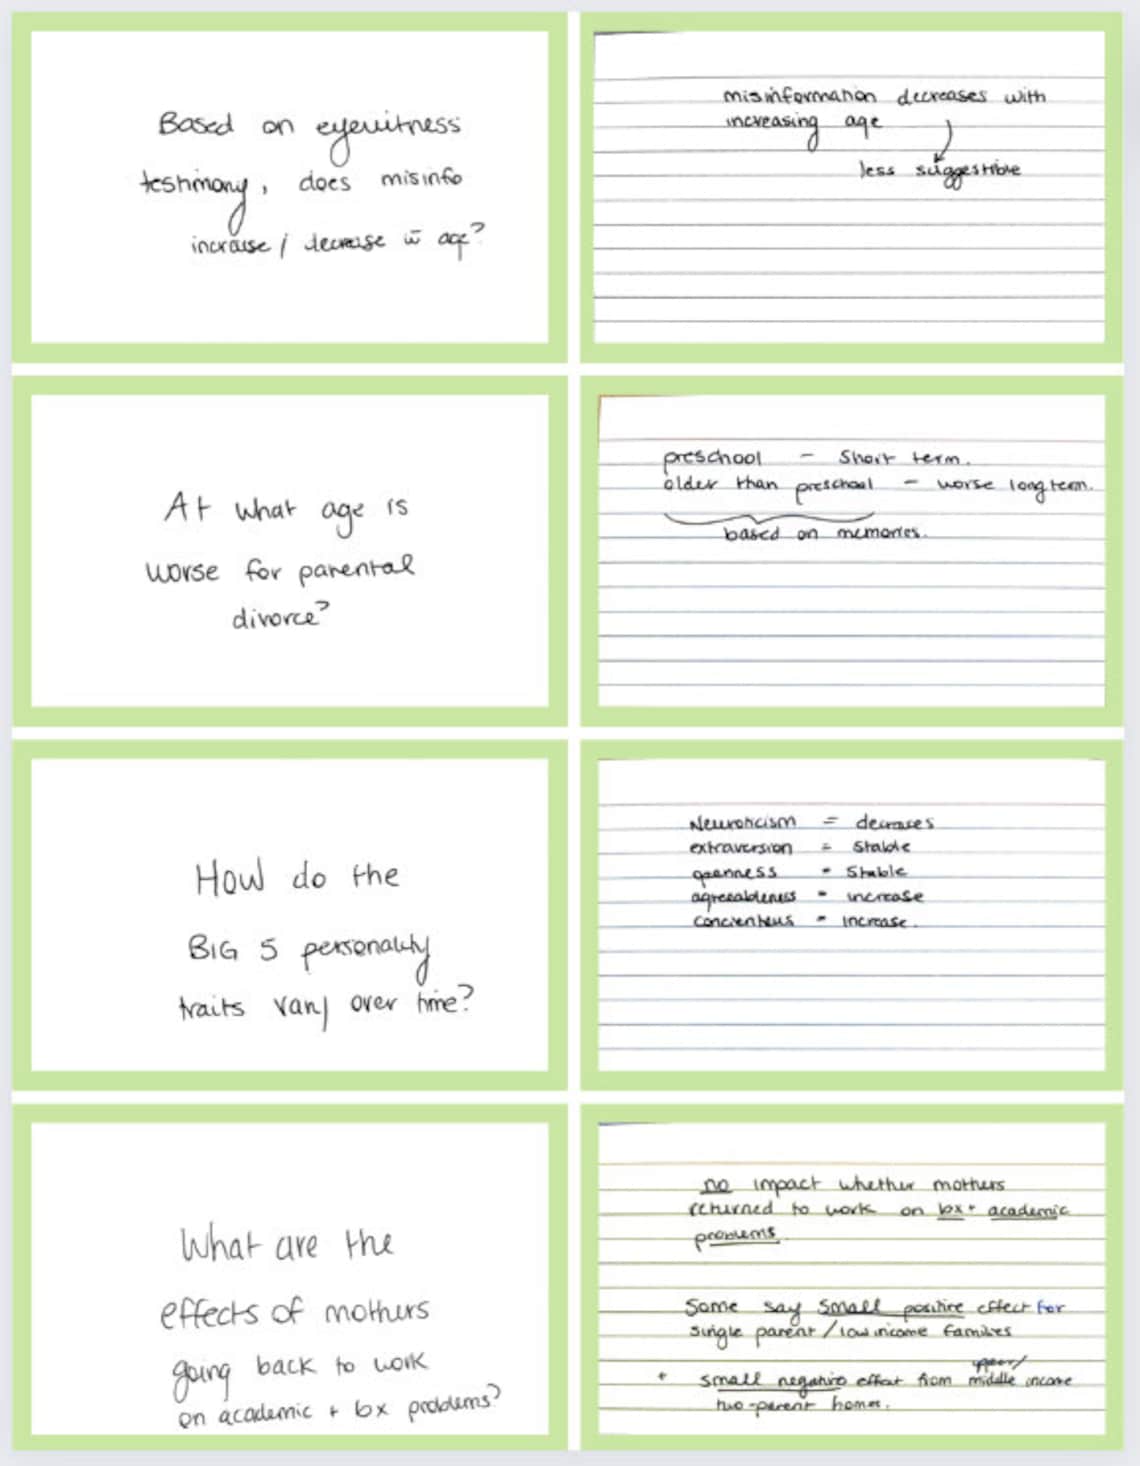 Based on eyewitness
testimony, does misinfo
increase / decrease w̄ age?
misinformation decreases with
increasing age
less suggestible
At what age is
worse for parental
divorce?
preschool - Short term.
older than preschool - worse long term.
based on memories.
How do the
BIG 5 personality
traits vary over time?
Neuroticism = decreases
extraversion = Stable
openness = Stable
agreeableness = increase
= increase.
What are the
effects of mothers
going back to work
on academic + bx problems?
no impact whether mothers
returned to work on bx + academic
problems.
Some say small positive effect for
single parent / low income families
upper/
+ small negative effect from middle income
two-parent homes.